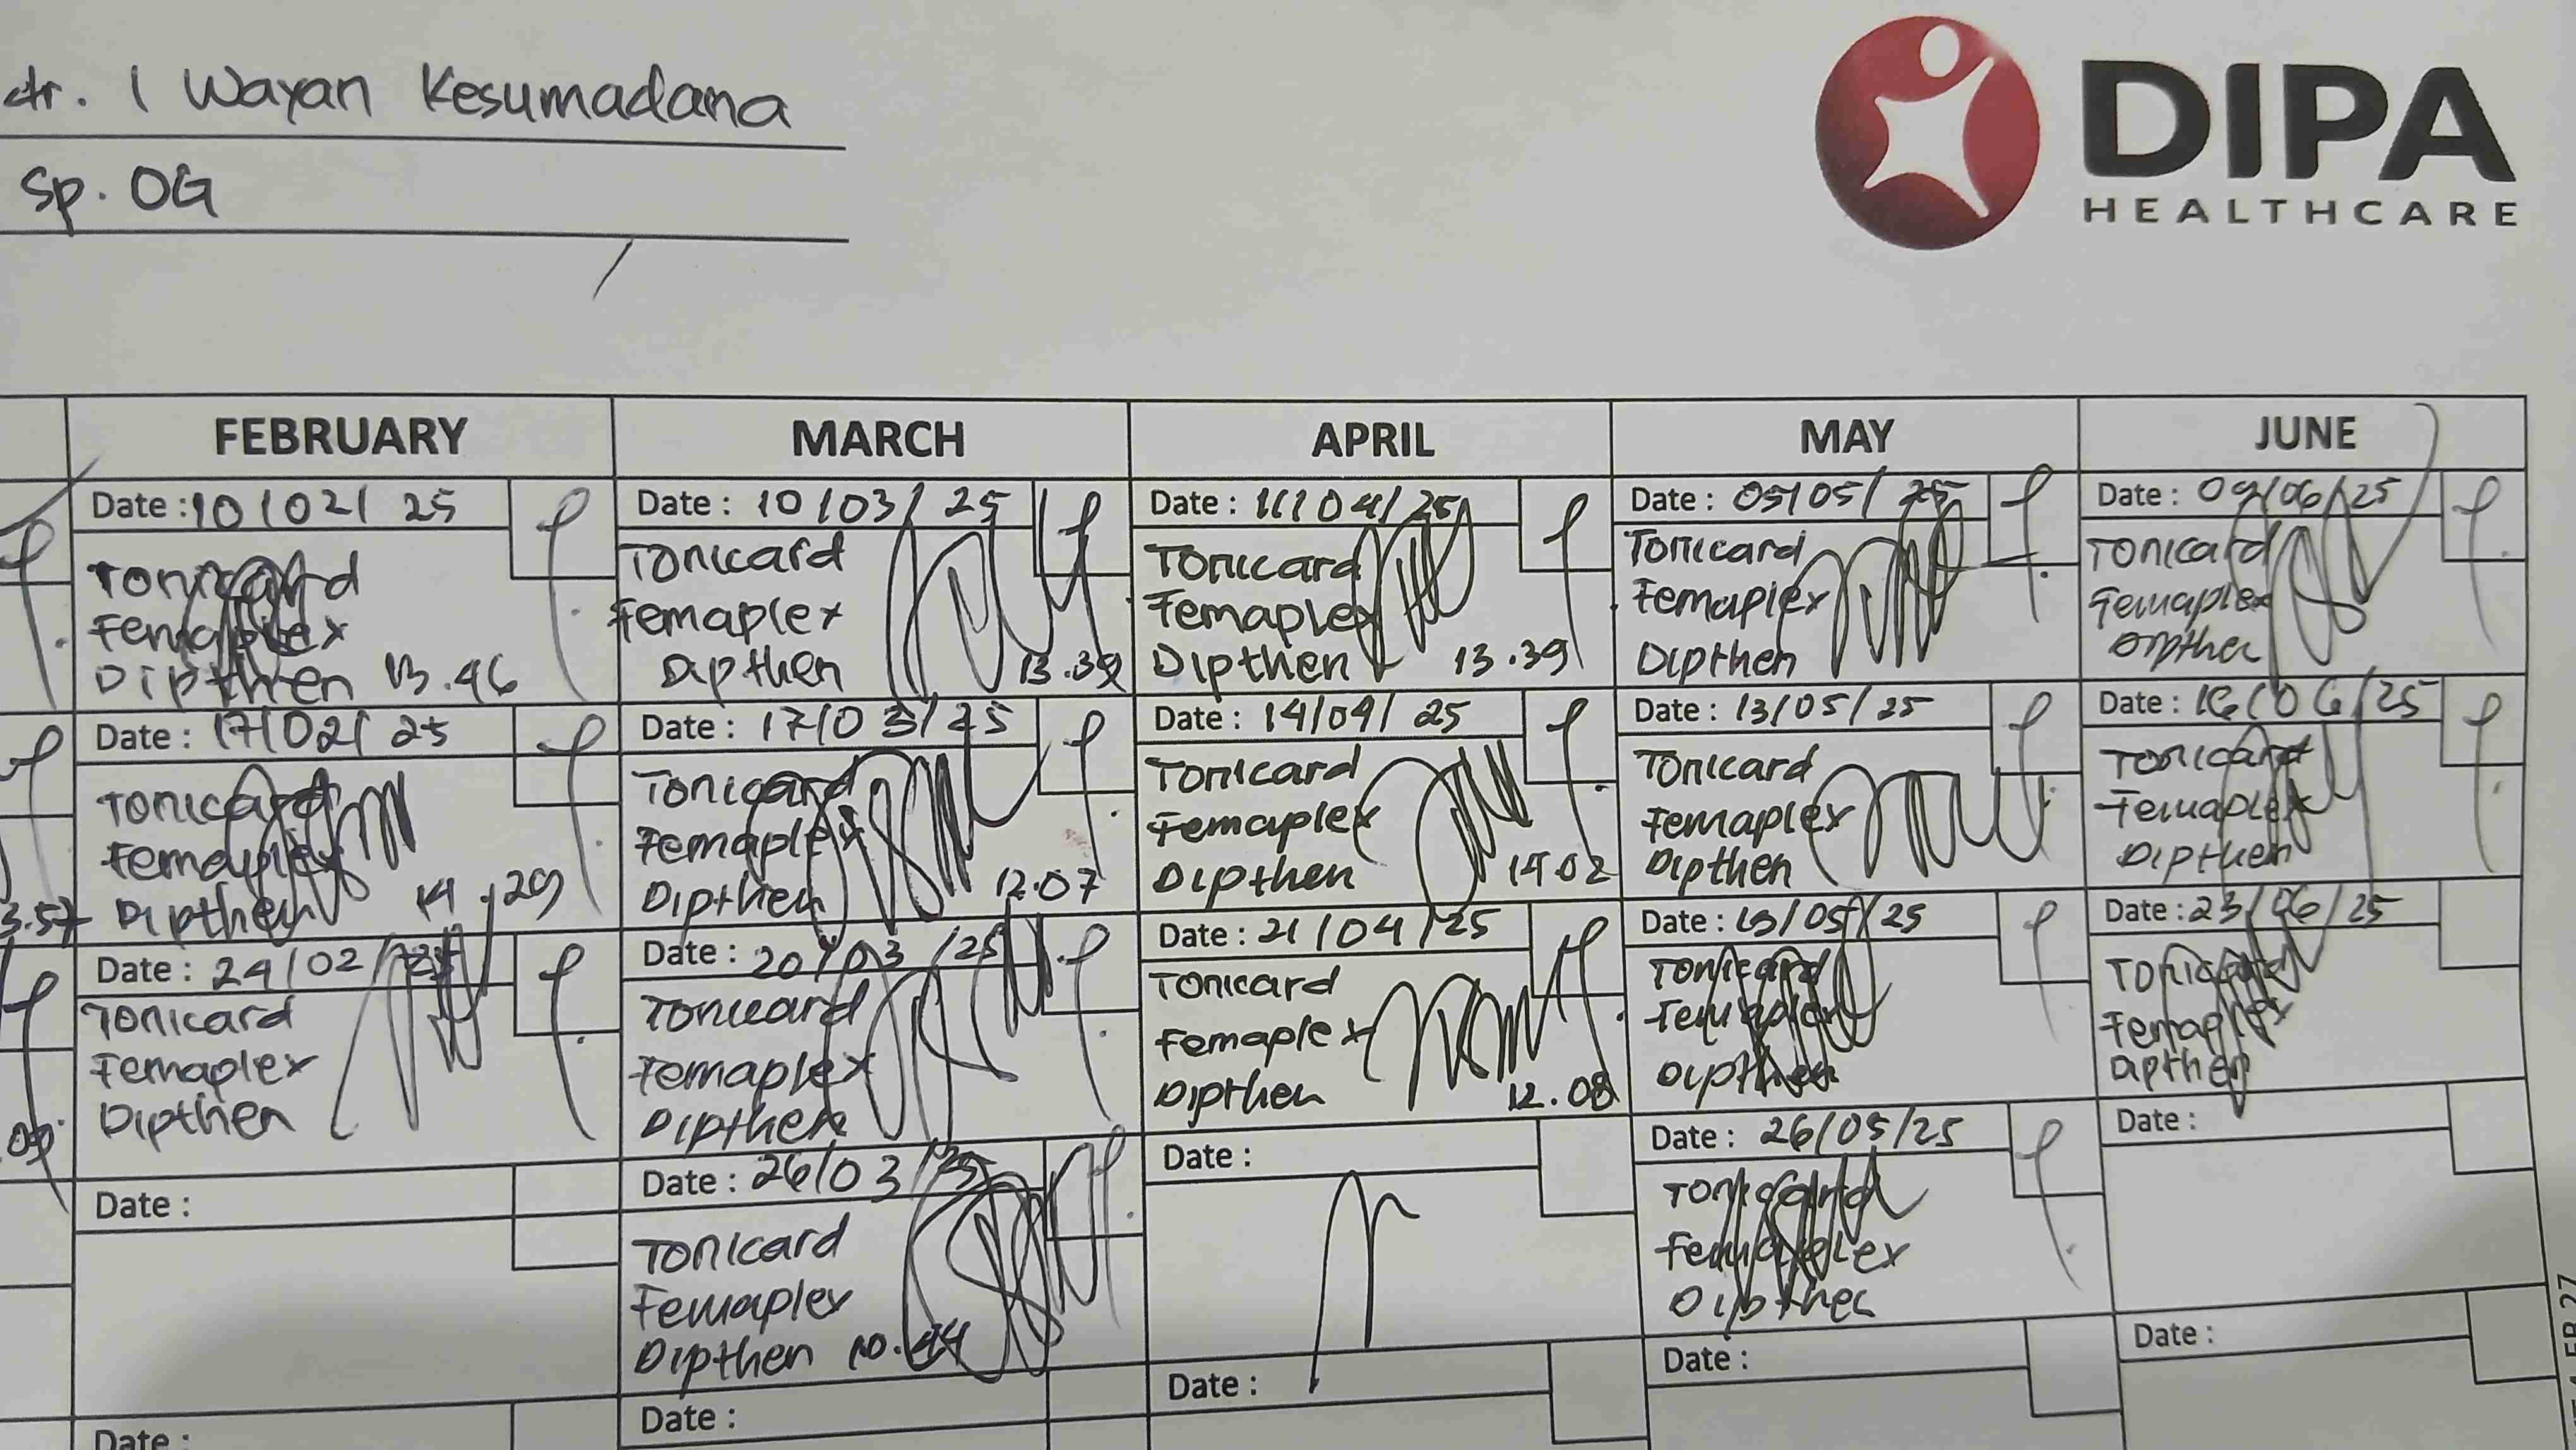 dr. I Wayan Kesumadana
Sp. OG
DIPA
HEALTHCARE
FEBRUARY
Date : 10/02/25
Tonicard
Femaplex
Dipthen 13.46
Date : 17/02/25
Tonicard
Femaplex
Dipthen 14.29
Date : 24/02/25
Tonicard
Femaplex
Dipthen
Date :
Date :
MARCH
Date : 10/03/25
Tonicard
Femaplex
Dipthen 13.39
Date : 17/03/25
Tonicard
Femaplex
Dipthen 12.07
Date : 20/03/25
Tonicard
Femaplex
Dipthen
Date : 26/03/25
Tonicard
Femaplex
Dipthen 10.44
Date :
APRIL
Date : 11/04/25
Tonicard
Femaplex
Dipthen 13.39
Date : 14/04/25
Tonicard
Femaplex
Dipthen 14.02
Date : 21/04/25
Tonicard
Femaplex
Dipthen 12.08
Date :
Date :
MAY
Date : 05/05/25
Tonicard
Femaplex
Dipthen
Date : 13/05/25
Tonicard
Femaplex
Dipthen
Date : 19/05/25
Tonicard
Femaplex
Dipthen
Date : 26/05/25
Tonicard
Femaplex
Dipthen
Date :
JUNE
Date : 09/06/25
Tonicard
Femaplex
Dipthen
Date : 16/06/25
Tonicard
Femaplex
Dipthen
Date : 23/06/25
Tonicard
Femaplex
Dipthen
Date :
Date :